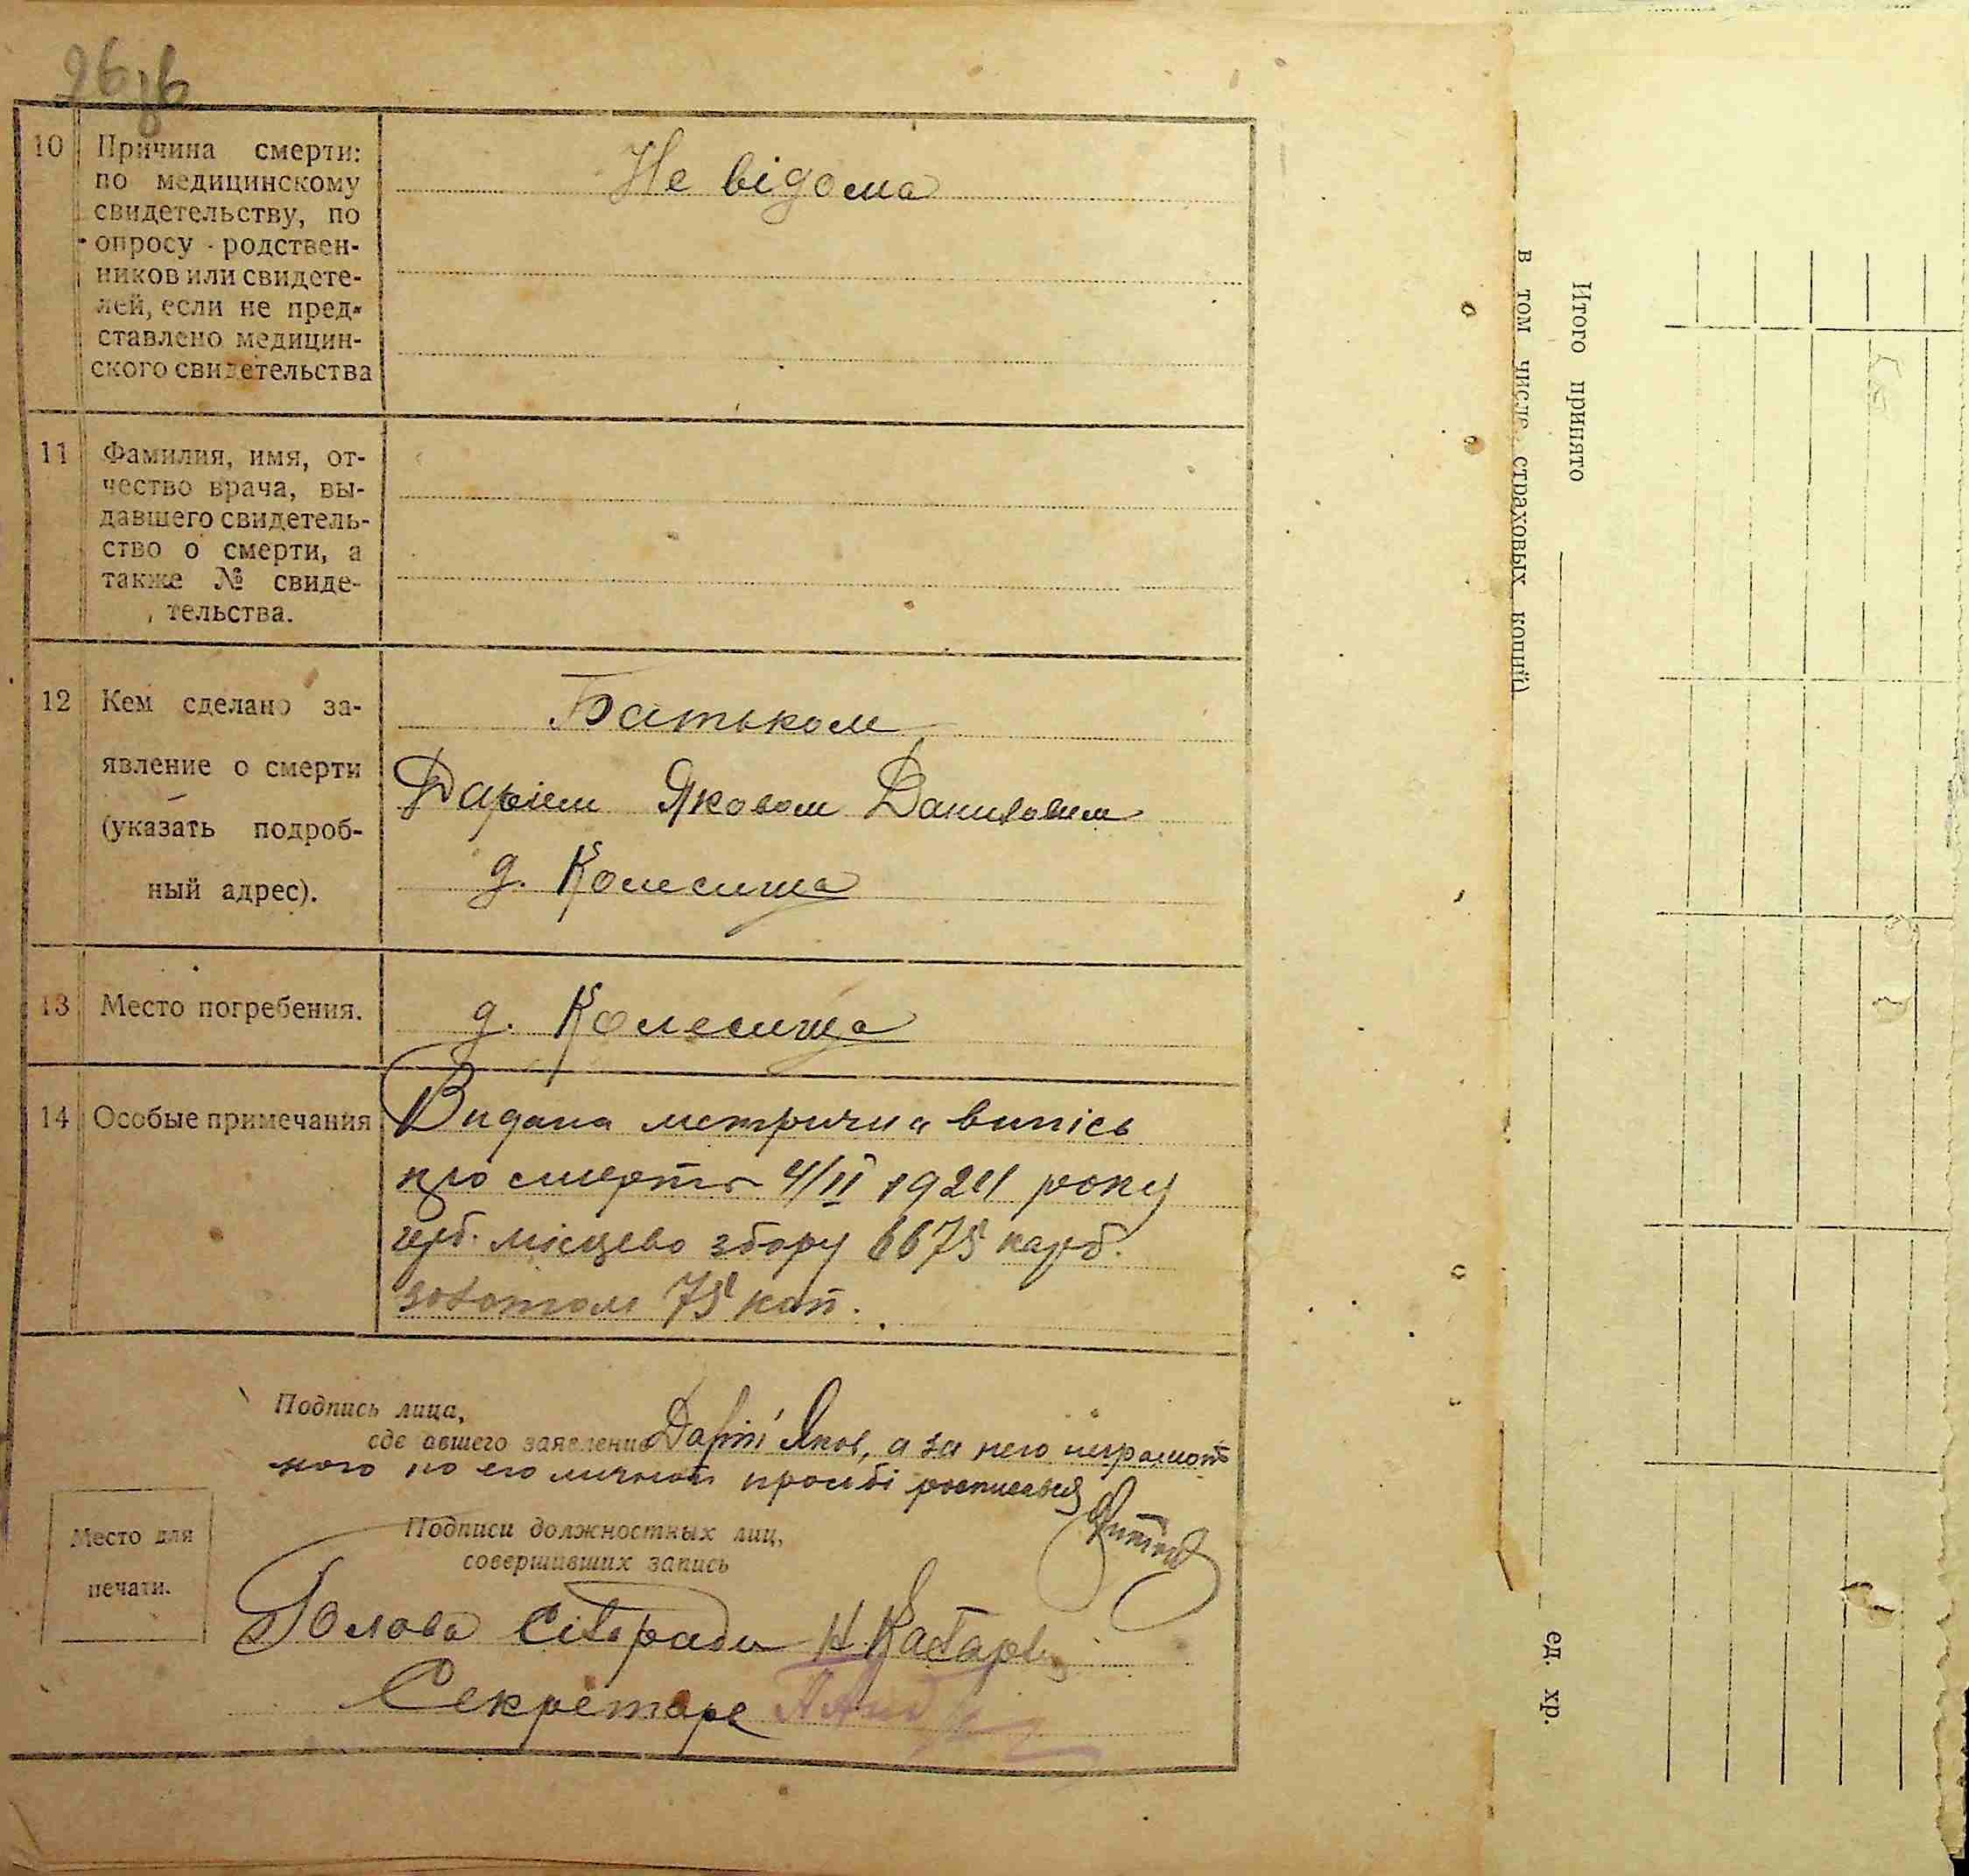 10 Причина смерти:
по медицинскому
свидетельству, по
опросу родствен-
ников или свидете-
лей, если не пред-
ставлено медицин-
ского свидетельства
Не відома
11 Фамилия, имя, от-
чество врача, вы-
давшего свидетель-
ство о смерти, а
также № свиде-
тельства.
12 Кем сделано за-
явление о смерти
(указать подроб-
ный адрес).
Батьком
Дарієм Яковом Даниловим
д. Колесища
13 Место погребения.
д. Колесища
14 Особые примечания
Видана метрична випісь
про смерть 4/II 1924 року
герб. місцево збору 6675 карб.
золотом 75 коп.
Подпись лица,
сде авшего заявление
Дарій Яков, а за него неграмот
ного по его личной просьбі росписався
Место для
печати.
Подписи должностных лиц,
совершивших запись
Голова Сільради Н.
Секретаре
Итого принято
в том числе страховых копий)
ед. хр.